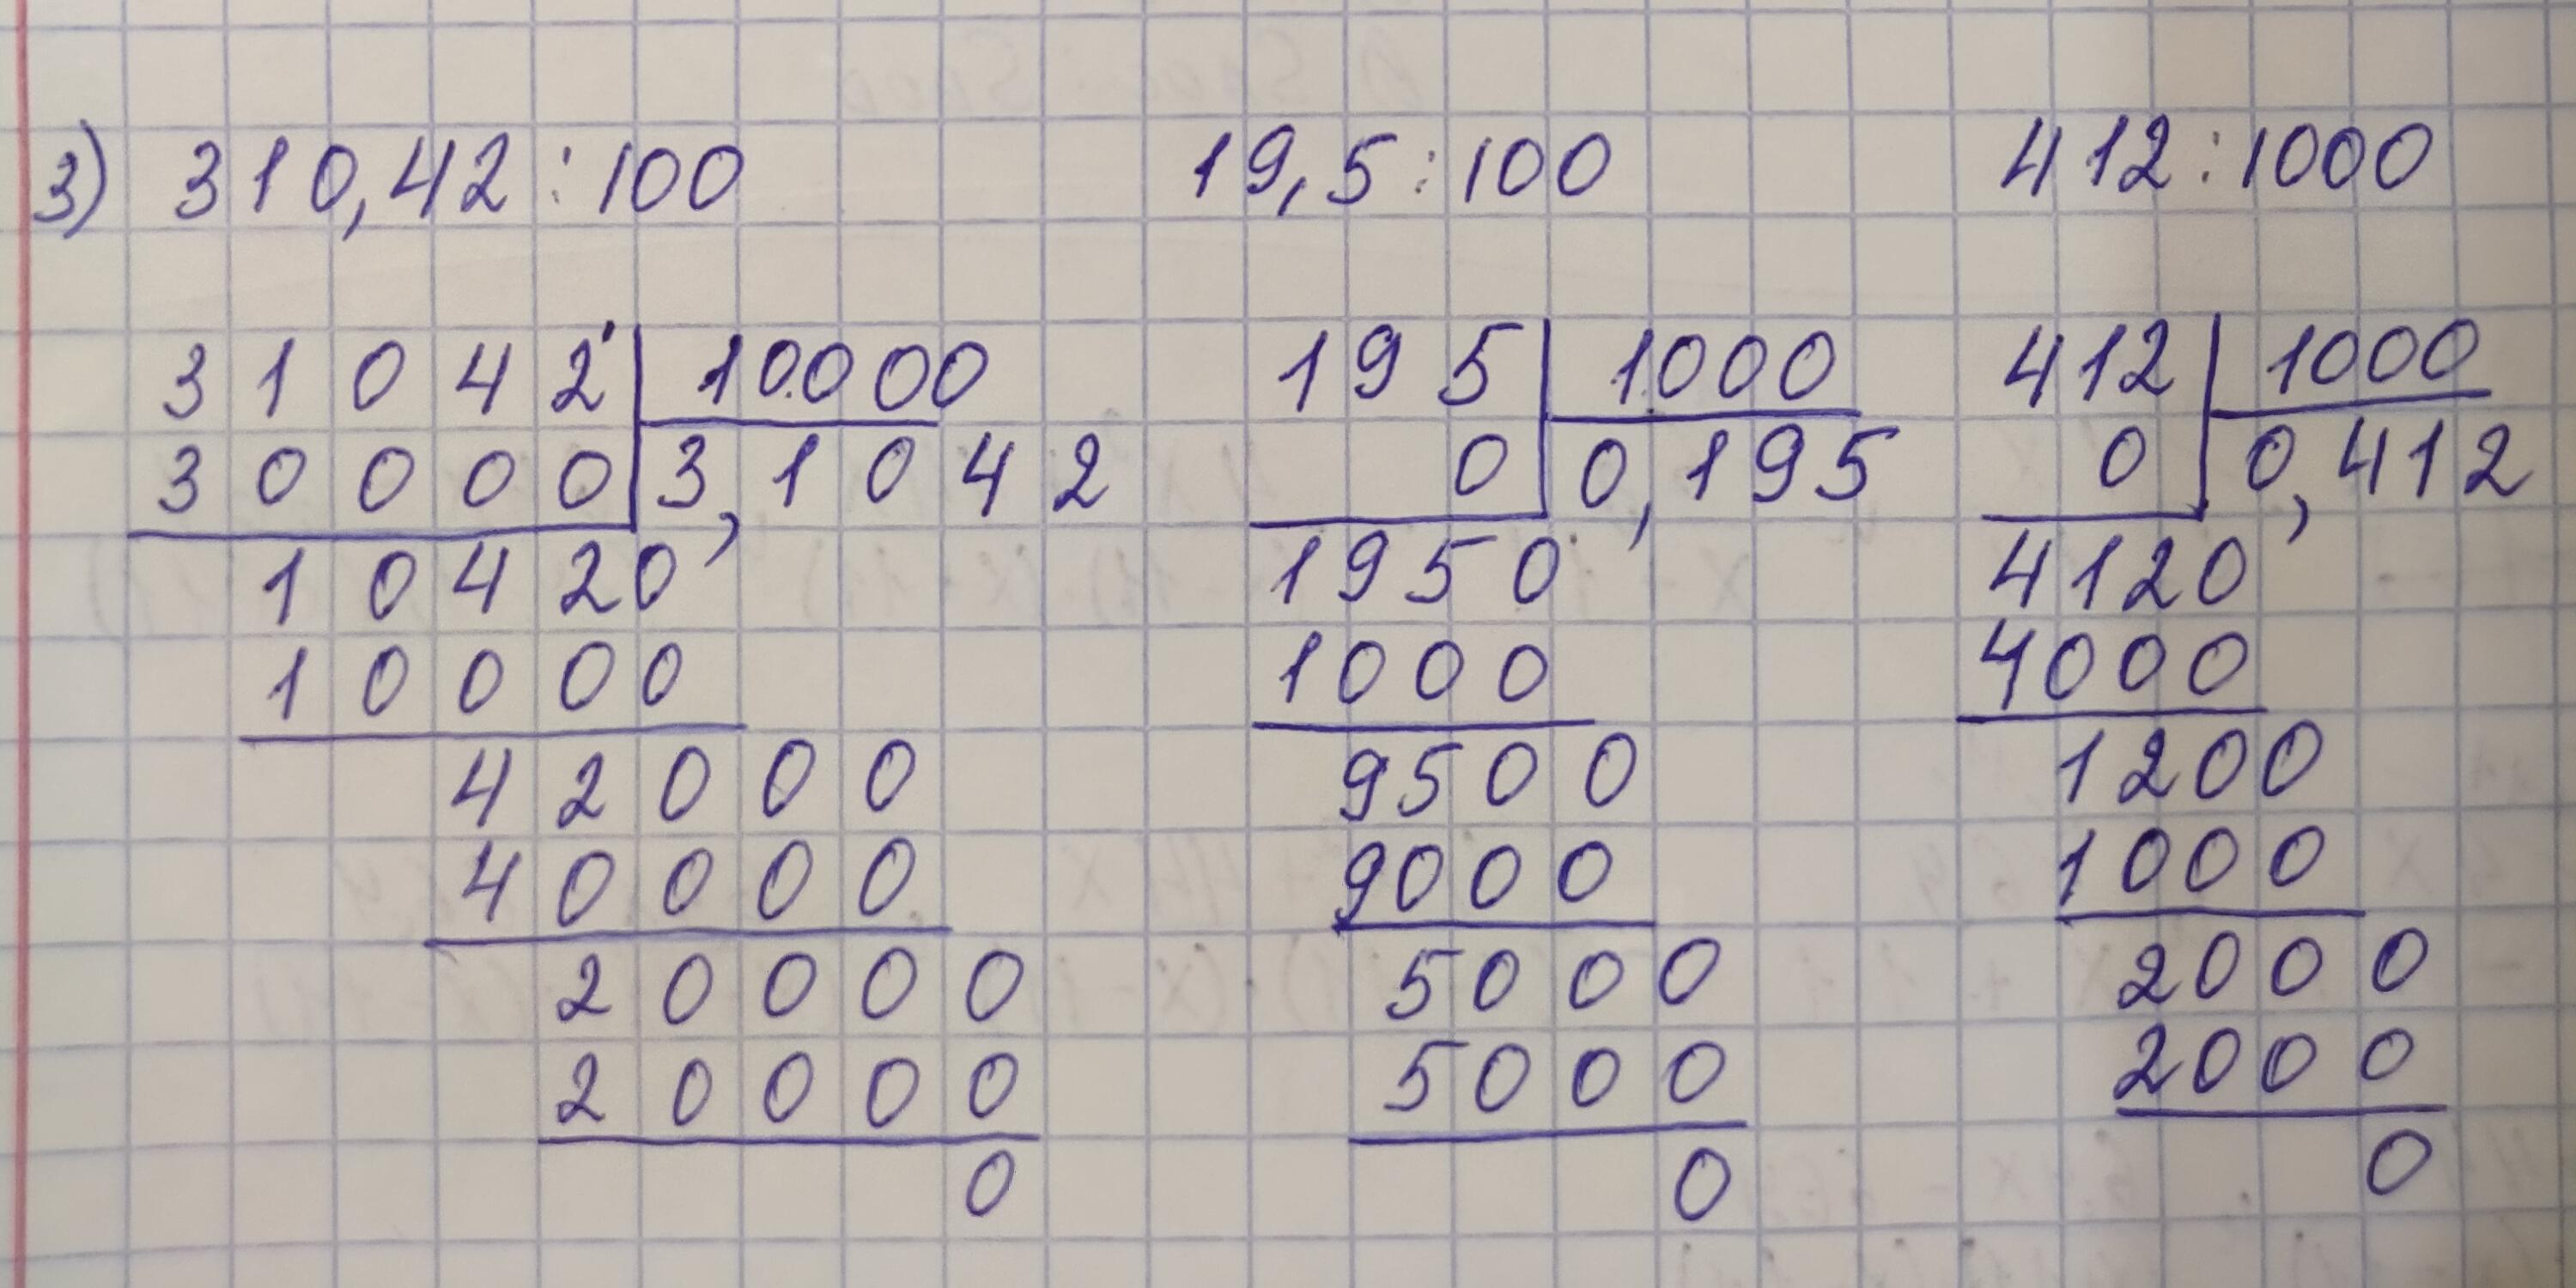 3) 310,42 : 100 19,5 : 100 412 : 1000
31042 10000 195 1000 412 1000
30000 3,1042 0 0,195 0 0,412
10420 1950 4120
10000 1000 4000
42000 9500 1200
40000 9000 1000
20000 5000 2000
20000 5000 2000
0 0 0